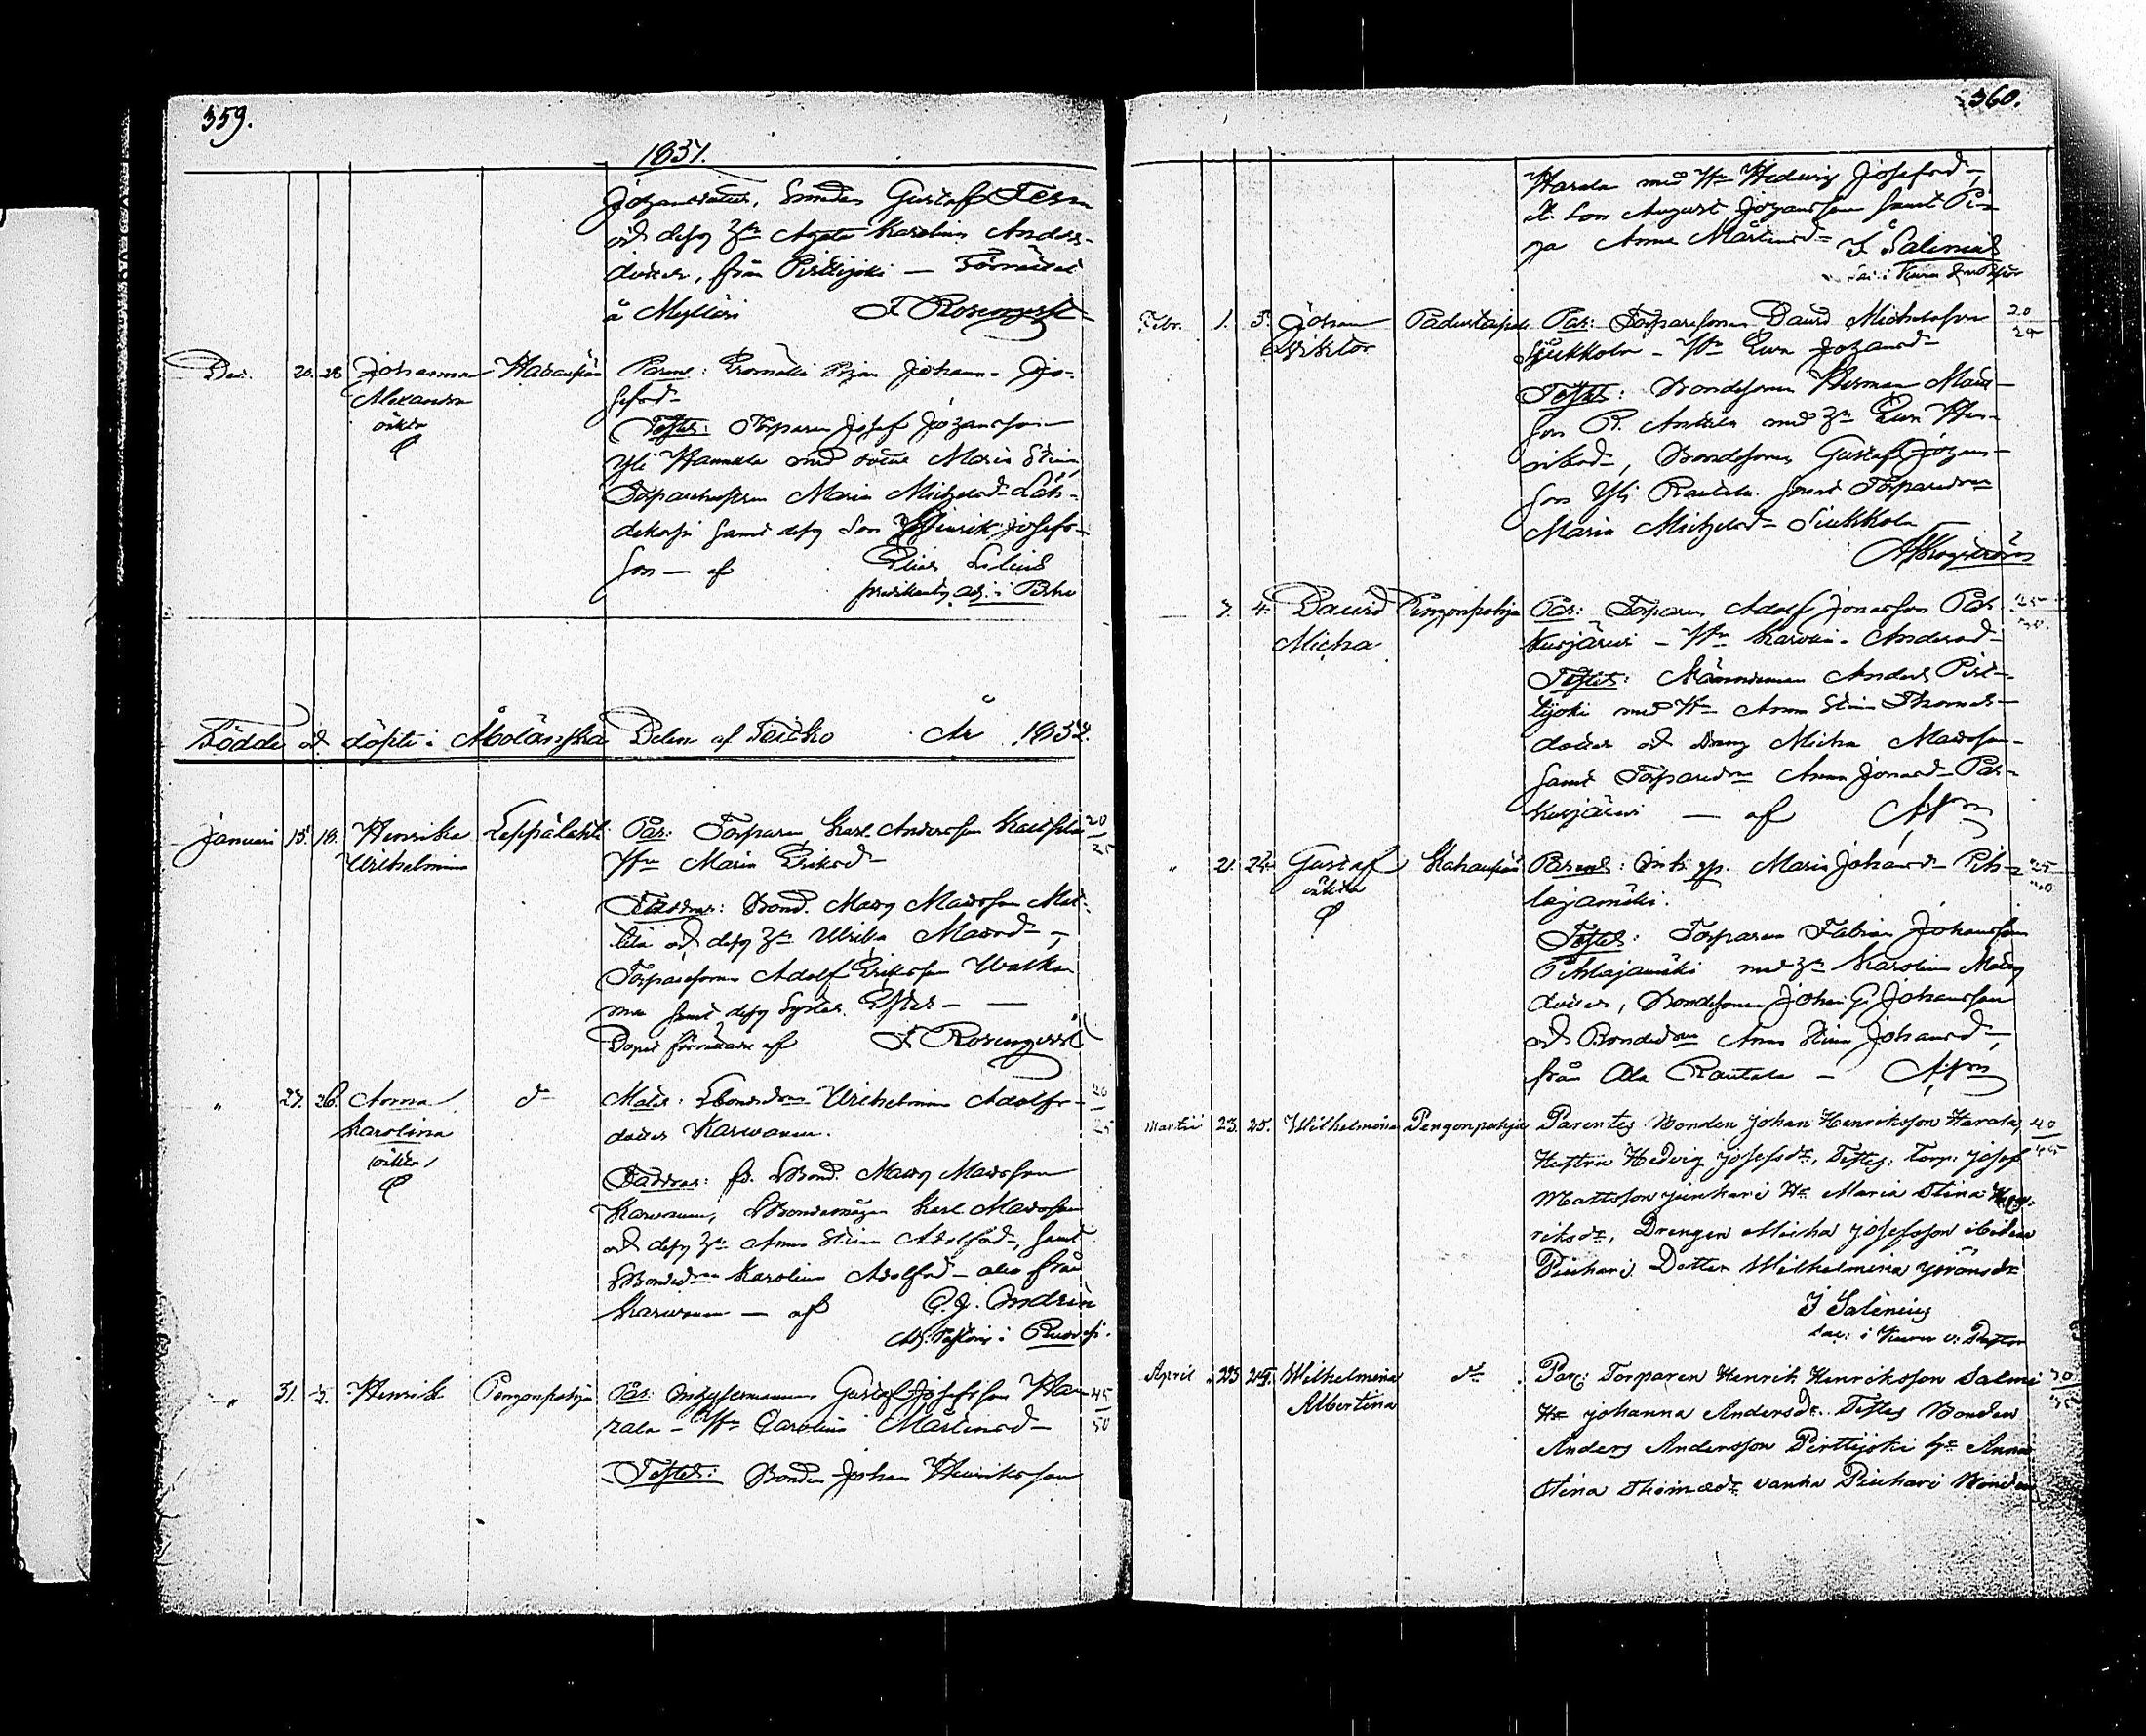 359.
1837.
Johansdotter, Smeden Gustaf Tern
och dess H:u Agata Karolina Anders-
dotter, från Perttijoki — Förrättat
à Mylläri F Rosenqvist
Dec. 20. 28 Johanna Alexandra oäkta Hahaupää Parens: Pigan Johanna Jo-
sefsd:r
Testes: Torparen Josef Johansson
Yli Hannula med dotter Maria Stina,
Torparehustrun Maria Michelsd:r Läh-
dekorpi samt dess Son Henrik Josefs-
son — af Elias Lilius
predikants adj: i
Födde och döpte i Åbolänska Delen af Teisko År 1832.
Januari 15. 18. Henrika Wilhelmina Leppälahti Par: Torparen Karl Andersson 20/25
H:u Maria Eriksd:r
Faddrar: Bond. Mats Matsson Mat-
tila och dess H:u Ulrika Matsd:r,
Torparesonen Adolf Eriksson
samt dess Syster Ester —
Dopet förrättadt af F Rosenqvist
" 27. 28. Anna Karolina oäkta d:o Mater: Bonded:r Wilhelmina Adolfs-
dotter Karwanen.
Faddrar: Bond. Mats Matsson
Karwanen, Bondemågen Karl Matsson
och dess H:u Anna Stina Adolfsd:r, samt
Bonded:r Karolina Adolfsd:r — alla från
Karwanen — af G. J. Andelin
Adj. Pastoris i Ruovesi.
" 31. 3. Henrik Pengonpohja Par: Inhysesmannen Gustaf Josefsson Ha- 45/50
rala — H:u Carolina Mårtensd:r
Testes: Bonden Johan Henriksson
360.
Harala med H:u Hedvig Josefsd:r,
d:o Son August Johansson samt Pi-
ga Anna Mårtensd:r J Salenius
Sac: i Kuru
Febr. 1. 5. Johan Viktor Padustaipale Par: Torparesonen David Michelsson 20/24
Siukkola — H:u Eva Johansd:r
Testes: Bondesonen Herman Mats-
son R. Anttila med H:u Eva Hen-
riksd:r, Bondesonen Gustaf Johans-
son Yli Rautala samt Torpared:r
Maria Michelsd:r Siukkola
A Bergström
7. 4. David Micha Pengonpohja Par: Torparen Adolf Jonasson Pas-
kusjärvi — H:u Karolin. Andersd:r
Testes: Nämndeman Anders Pert-
tijoki med H:u Anna Stina Thomas-
dotter och Dreng Micha Matsson
samt Torpared:r Anna Jonasd:r Pas-
kusjärvi — af
" 21. 24. Gustaf oäkta Hahaupää Parens: Inh. p. Maria Johansd:r Pih- 25
lajamäki.
Testes: Torparen Fabian Johansson
Pihlajamäki med H:u Karolina Mats
dotter, Bondesonen Johan G. Johansson
och Bonded:r Anna Stina Johansd:r,
från Ala Rautala —
Martii 23. 25. Wilhelmina Pengonpohja Parentes Bonden Johan Henriksson Harala, 40/45
Hustru Hedvig Josefsd:r, Testes: Torp: Josef
Mattsson H:u Maria Stina Hen-
riksd:r, Drengen Micha Josefsson ibidem
Piuhari Dotter Wilhelmina Jöransd:r
J Salenius
Sac: i Kuru v: Pastor
April 23 29. Wilhelmina Albertina d:o Par: Torparen Henrik Henriksson Salmi 30/35
H:u Johanna Andersd:r. Testes Bonden
Anders Andersson Perttijoki h:u Anna
Stina Thomæd:r vanha Piuhari Bonden